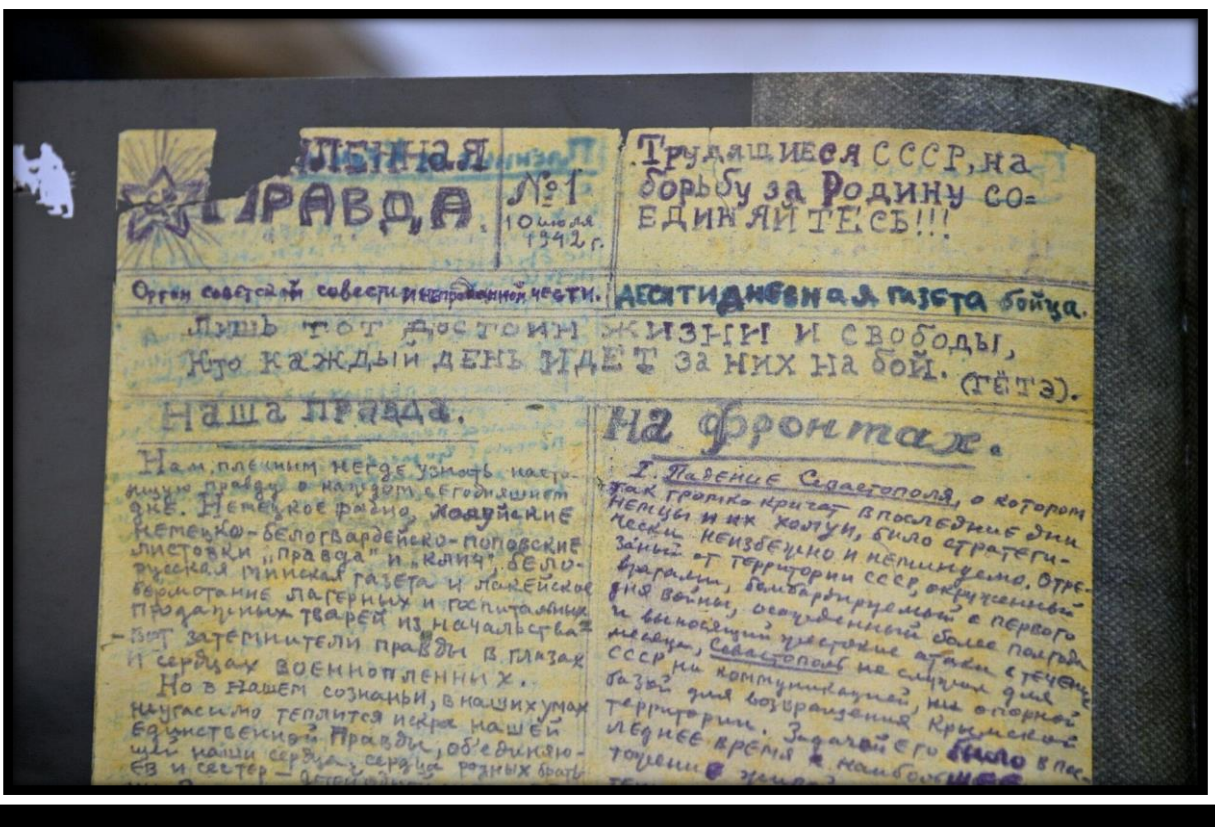 ЛЕННАЯ
ПРАВДА.
№1
10 июля
1942 г.
Трудящиеся СССР, на
борьбу за Родину со=
единяйтесь!!!
Орган советской совести и непроданной чести.
Десятидневная газета бойца.
Лишь тот достоин жизни и свободы,
Кто каждый день идет за них на бой. (Гётэ).
Наша правда.
Нам, пленным негде узнать насто-
ящую правду о каждом сегодняшнем
дне. Немецкое радио, холуйские
немецко-белогвардейско-поповские
листовки „Правда" и „Клич", бело-
русская минская газета и лакейское
бормотание лагерных и госпитальных
продажных тварей из начальства=
- вот затемнители правды в глазах
и сердцах военнопленных.
Но в нашем сознаньи, в наших умах
неугасимо теплится искра нашей
единственной Правды, об'единяю-
щей наши сердца, сердца родных брать
ев и сестер -
На фронтах.
I. Падение Севастополя, о котором
так громко кричат в последние дни
немцы и их холуи, было стратеги-
чески неизбежно и неминуемо. Отре-
занный от территории СССР, окруженный
врагами, бомбардируемый с первого
дня войны, осажденный более полгода
и выносящий жестокие атаки в течение
месяца, Севастополь не служил для
СССР ни коммуникацией, ни опорной
базой для возвращения Крымской
территории. Задачей его было в пос-
леднее время наибольшее